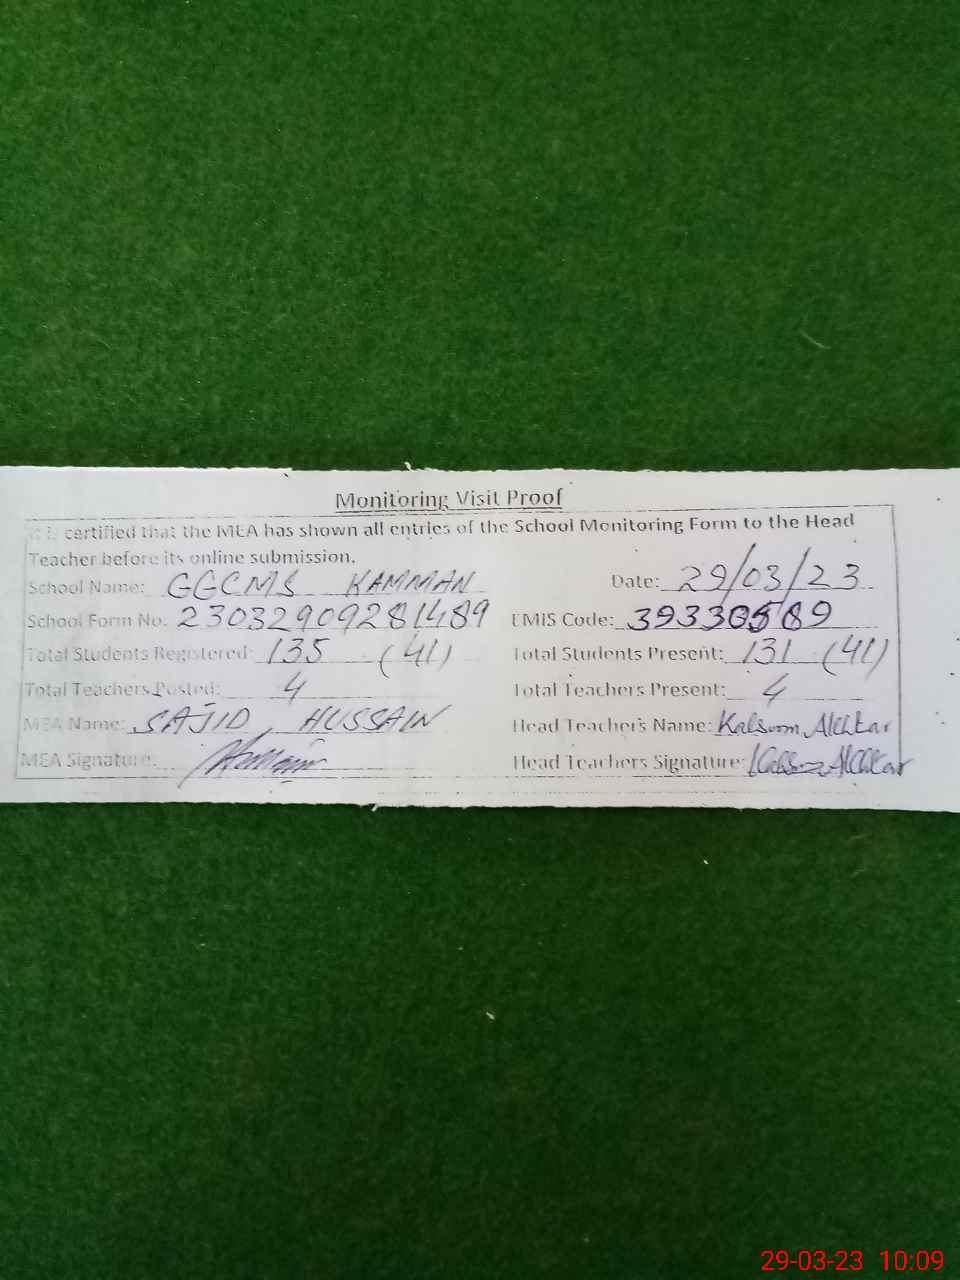 Monitoring Visit Proof
certified that the MEA has shown all entries of the School Monitoring Form to the Head
Teacher before its online submission.
School Name: GGCMS KAMMAN Date: 29/03/23
School Form No. 23032909281489 EMIS Code: 39330589
Total Students Registered: 135 (41) Total Students Present: 131 (41)
Total Teachers Posted: 4 Total Teachers Present: 4
MEA Name: SAJID HUSSAIN Head Teacher's Name: Kalsoom Akhtar
MEA Signature: Hussain Head Teachers Signature: Kalsoom Akhtar
29-03-23 10:09